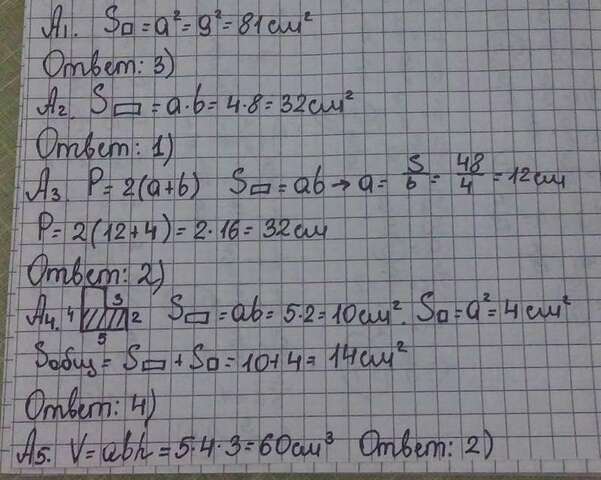 A1. S□ = a² = 9² = 81 см²
Ответ: 3)
A2. S▭ = a·b = 4·8 = 32 см²
Ответ: 1)
A3. P = 2(a+b) S▭ = ab → a = S/b = 48/4 = 12 см
P = 2(12+4) = 2·16 = 32 см
Ответ: 2)
A4. 4 3 2 5 S▭ = ab = 5·2 = 10 см². S□ = a² = 4 см²
Sобщ = S▭ + S□ = 10+4 = 14 см²
Ответ: 4)
A5. V = abh = 5·4·3 = 60 см³ Ответ: 2)